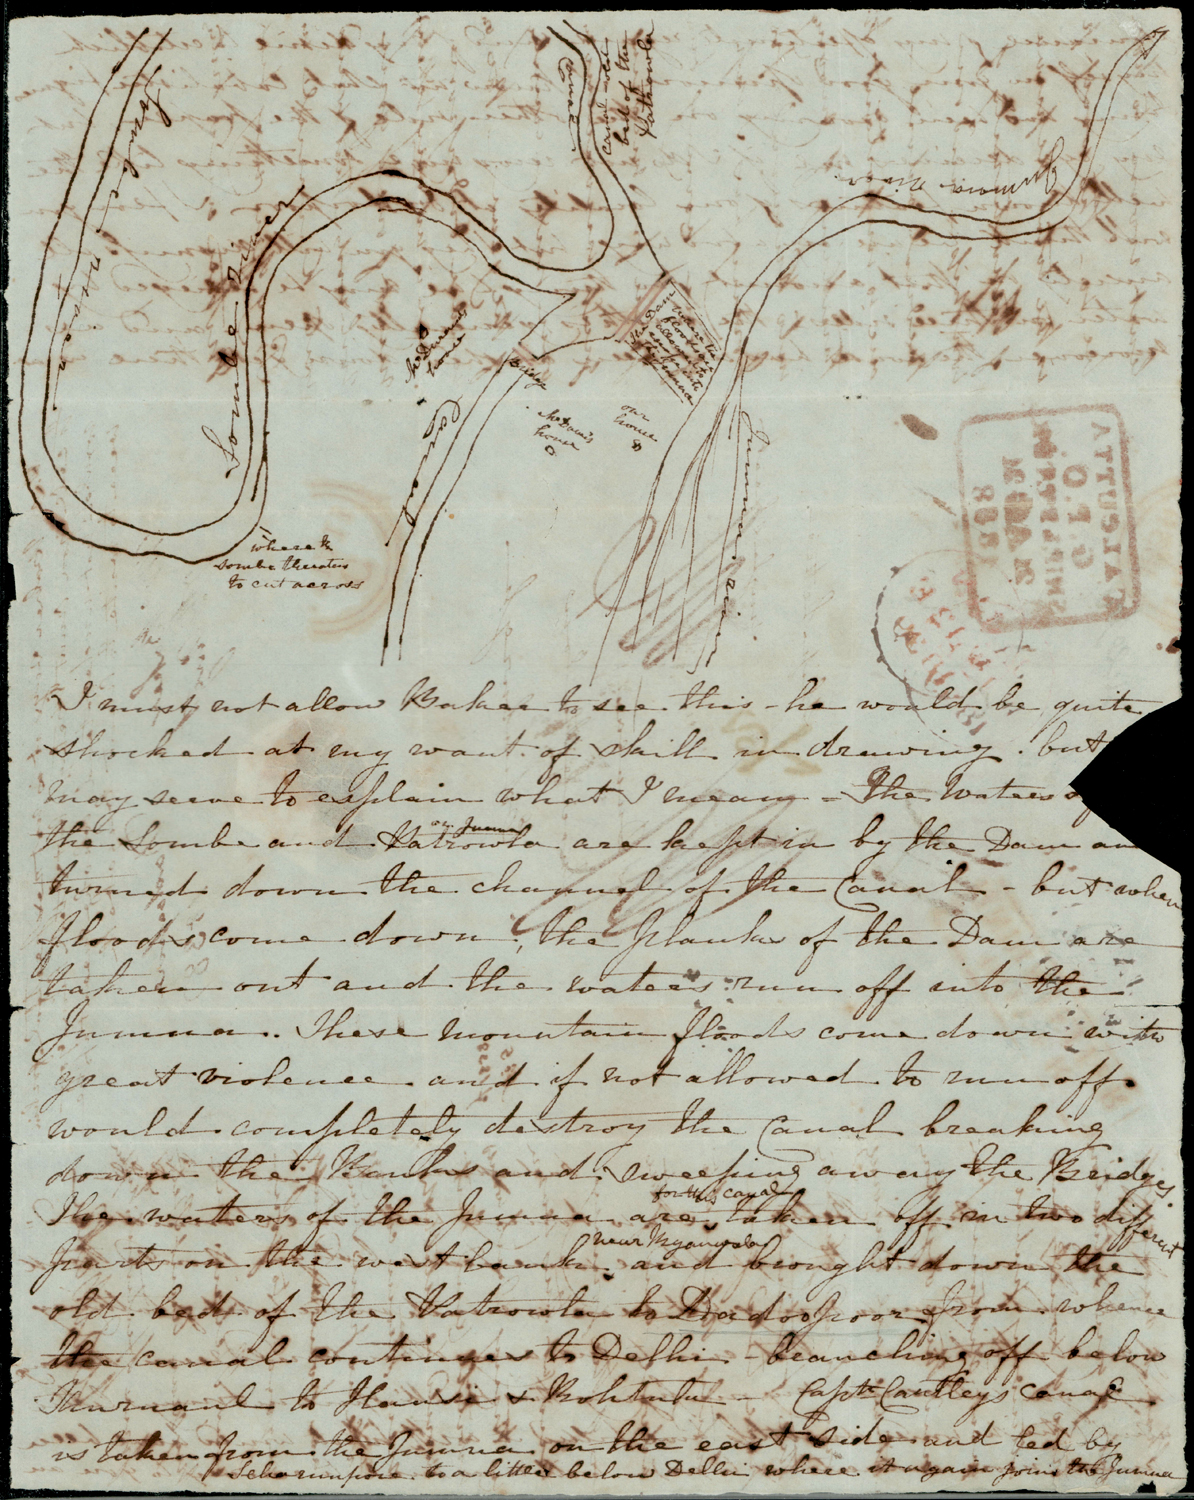 Sombe river
Sombe River
Canal
canal under
bed of the
Patrowla
Jumna River
Mr Durand's
house
Canal
Bridge
McDan's
house
our
house
The Dam
where the
flood
Jumna
Jumna river
where the
Sombe threatens
to cut across
CALCUTTA
G.P.O.
SHIP LETTER
MAR
I must not allow Baker to see this - he would be quite
shocked at my want of skill in drawing. but
may serve to explain what I mean - The waters of
the Sombe and Patrowla or Jumna are kept in by the Dam an
turned down the channel of the Canal - but when
floods come down, the planks of the Dam are
taken out and the waters run off into the
Jumna. These mountain floods come down with
great violence and if not allowed to run off
would completely destroy the Canal breaking
down the Banks and sweeping away the Bridges
The waters of the Jumna are for this canal taken off in two different
parts on the west bank near and brought down the
old bed of the Patrowla to Dadoopoor from whence
the canal continues to Delhi - branching off below
Kurnaul to Hansi & Rohtuk - Captn Cautleys canal
is taken from the Jumna on the east side and led by
Seharunpore to a little below Delhi where it again joins the Jumna